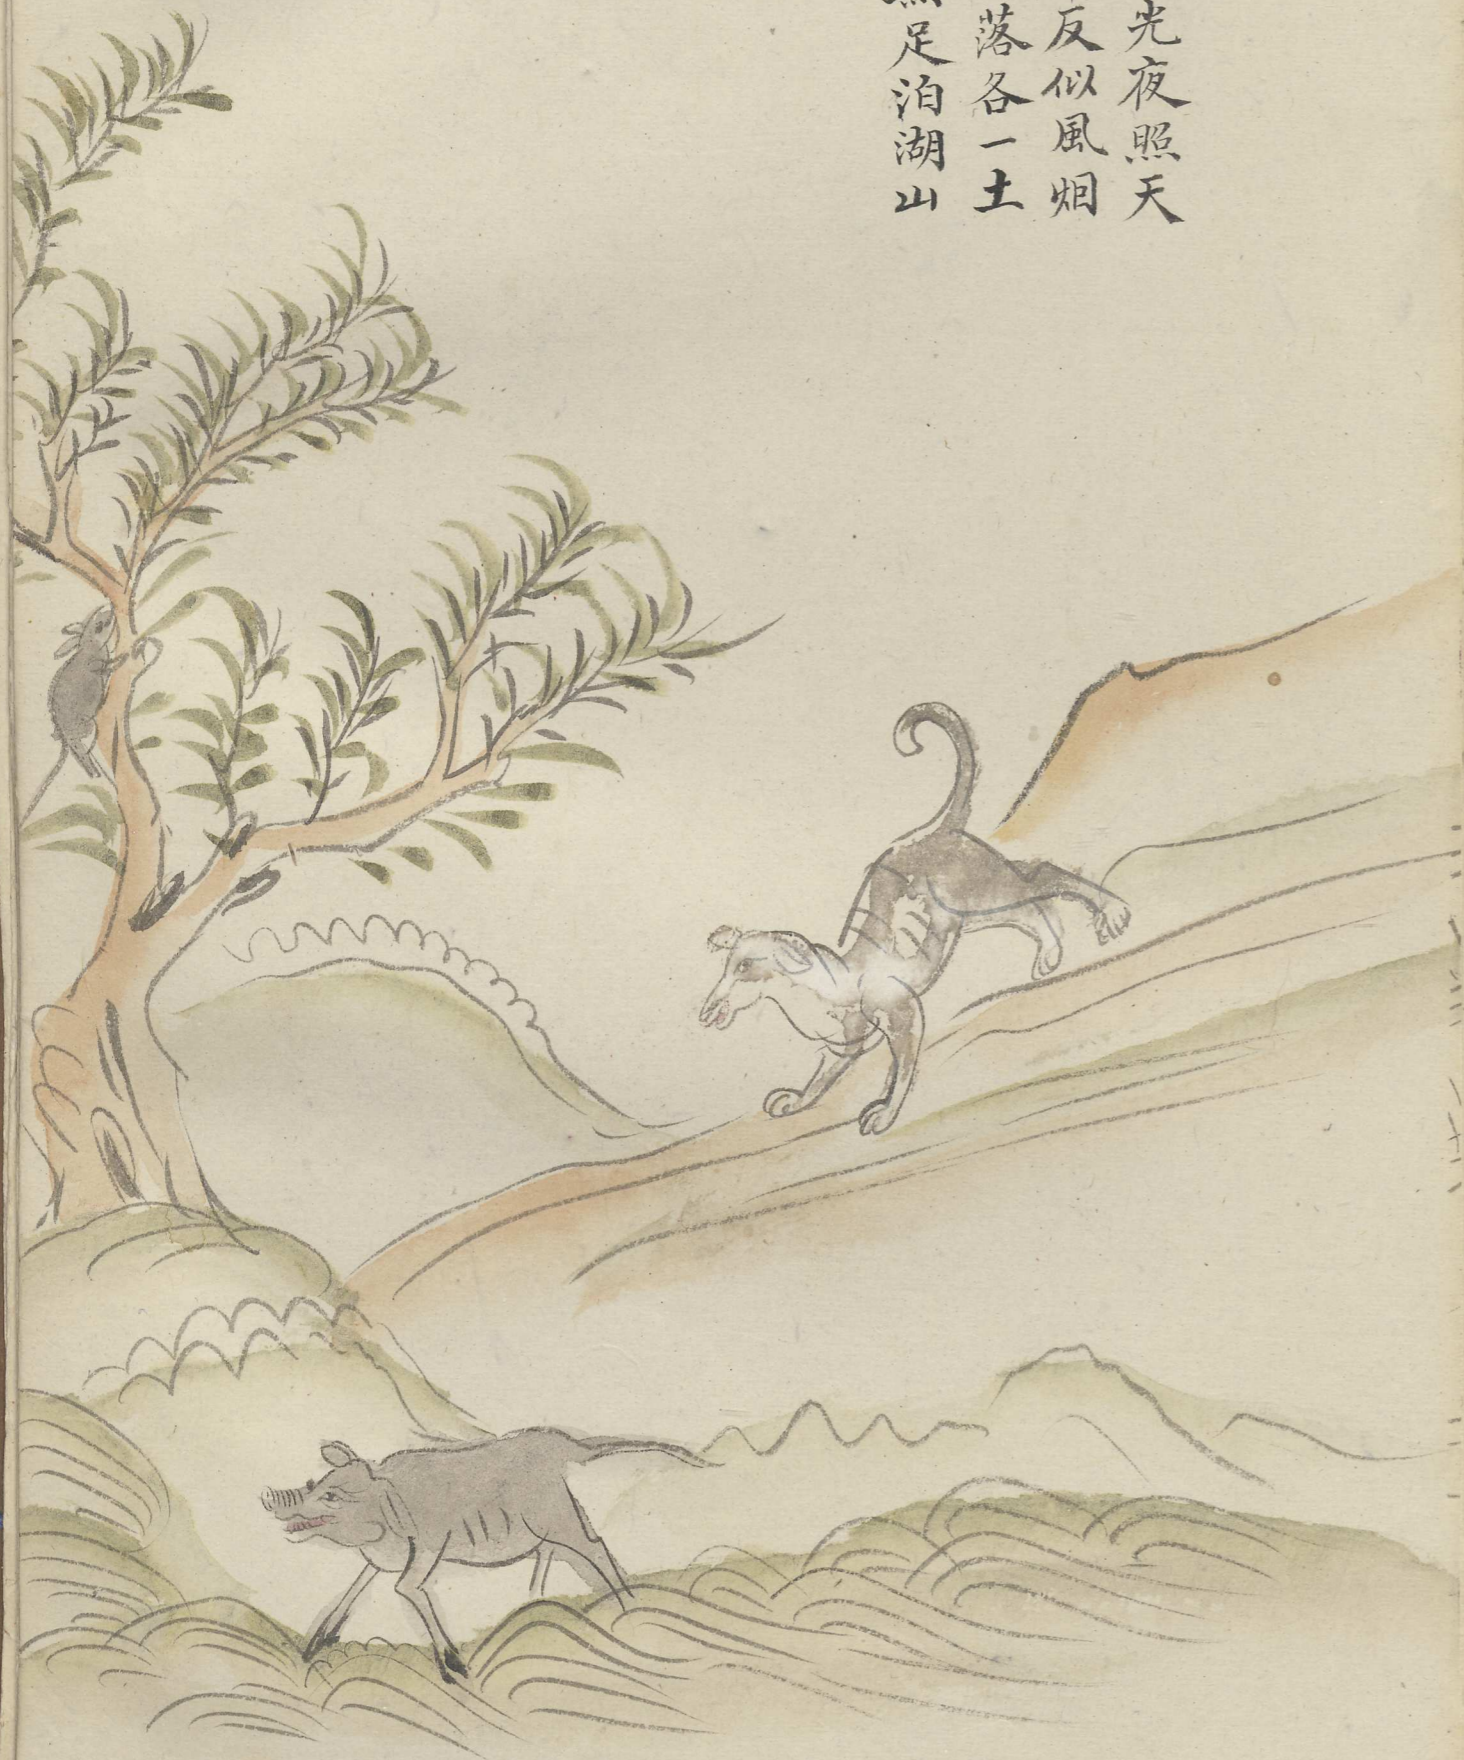 光夜照天
反似風烟
落各一土
足泊湖山